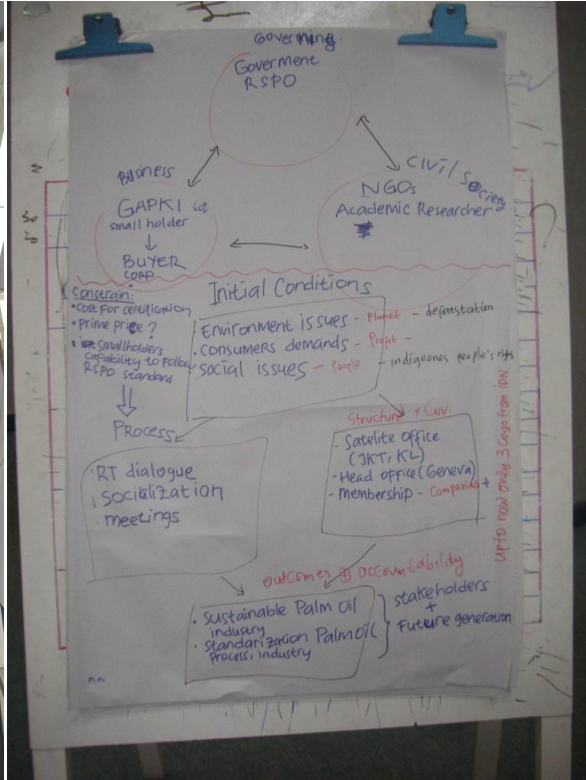 Governing.
Goverment
RSPO
Business
GAPKI
small holder
↓
BUYER
Civil Society
NGOs
Academic Researcher
Constrain:
• Cost for certification
• Prime Price?
• Smallholders
capability to follow
RSPO standard
Initial Conditions
Environment issues - Planet - deforestation
• Consumers demands - Profit -
social issues - People - indigeones people's rights
Process
• RT dialogue
• Socialization
• meetings
Structure + Gov
- Satelite Office
(JKT, KL)
- Head office (Geneva)
- Membership - Companies +
up to now only 3 Cogs from IDN
outcomes + accountability
• Sustainable Palm Oil
industry
• standarization Palm Oil
Process, industry
stakeholders
+
Future generation